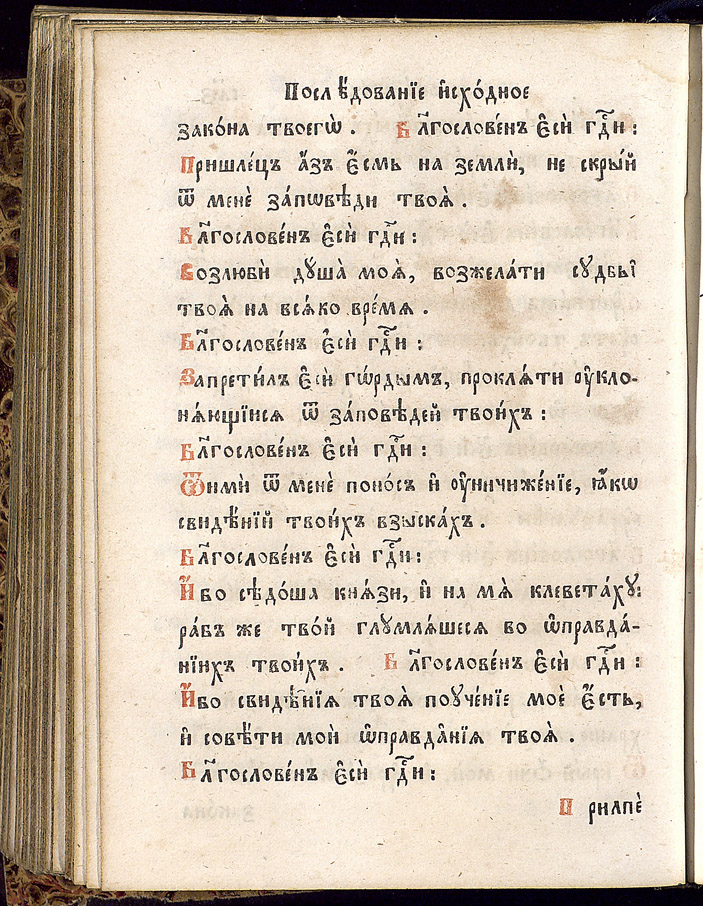 Послѣ́дованїе и҆схо́дное
зако́на твоегѡ̀ . Бл҃гослове́нъ є҆сѝ гдⷭ҇и :
Пришле́цъ а҆́зъ є҆́смь на землѝ, не скры́й
ѿ менѐ за́пѡвѣди твоѧ̀ .
Бл҃гослове́нъ є҆сѝ гдⷭ҇и :
Возлюбѝ дꙋша̀ моѧ̀, возжела́ти сꙋдьбы̑
твоѧ̀ на всѧ́ко вре́мѧ .
Бл҃гослове́нъ є҆сѝ гдⷭ҇и :
Запрети́лъ є҆сѝ гѡ́рдымъ, проклѧ́ти ᲂу҆кло-
нѧ́ющїисѧ ѿ за́повѣдей твои́хъ :
Бл҃гослове́нъ є҆сѝ гдⷭ҇и :
Ѿимѝ ѿ менѐ поно́съ и҆ ᲂу҆ничиже́нїе, ꙗ҆́кѡ
свидѣ́нїй твои́хъ взыска́хъ .
Бл҃гослове́нъ є҆сѝ гдⷭ҇и :
И҆́бо сѣдо́ша кнѧ́зи, и҆ на мѧ̀ клевета́хꙋ:
ра́бъ же тво́й глꙋмлѧ́шесѧ во ѡ҆правда́-
нїихъ твои́хъ . Бл҃гослове́нъ є҆сѝ гдⷭ҇и :
И҆́бо свидѣ́нїѧ твоѧ̀ поꙋче́нїе моѐ є҆́сть,
и҆ совѣ́ти моѝ ѡ҆правда̑нїѧ твоѧ̀ .
Бл҃гослове́нъ є҆сѝ гдⷭ҇и :
Прилпѐ